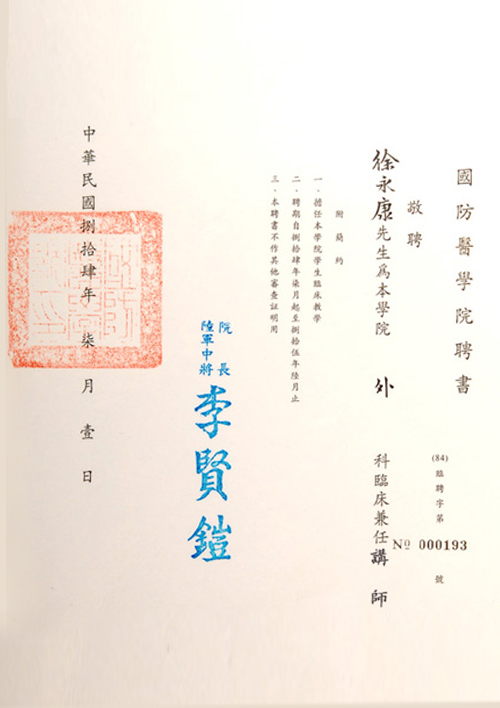 國防醫學院聘書
(84)臨聘字第 № 000193 號
敬聘
徐永康先生為本學院 外 科臨床兼任講師
附簡約
一．擔任本學院學生臨床教學
二．聘期自捌拾肆年柒月起至捌拾伍年陸月止
三．本聘書不作其他審查証明用
院長
陸軍中將
李賢鎧
中華民國捌拾肆年 柒 月 壹 日